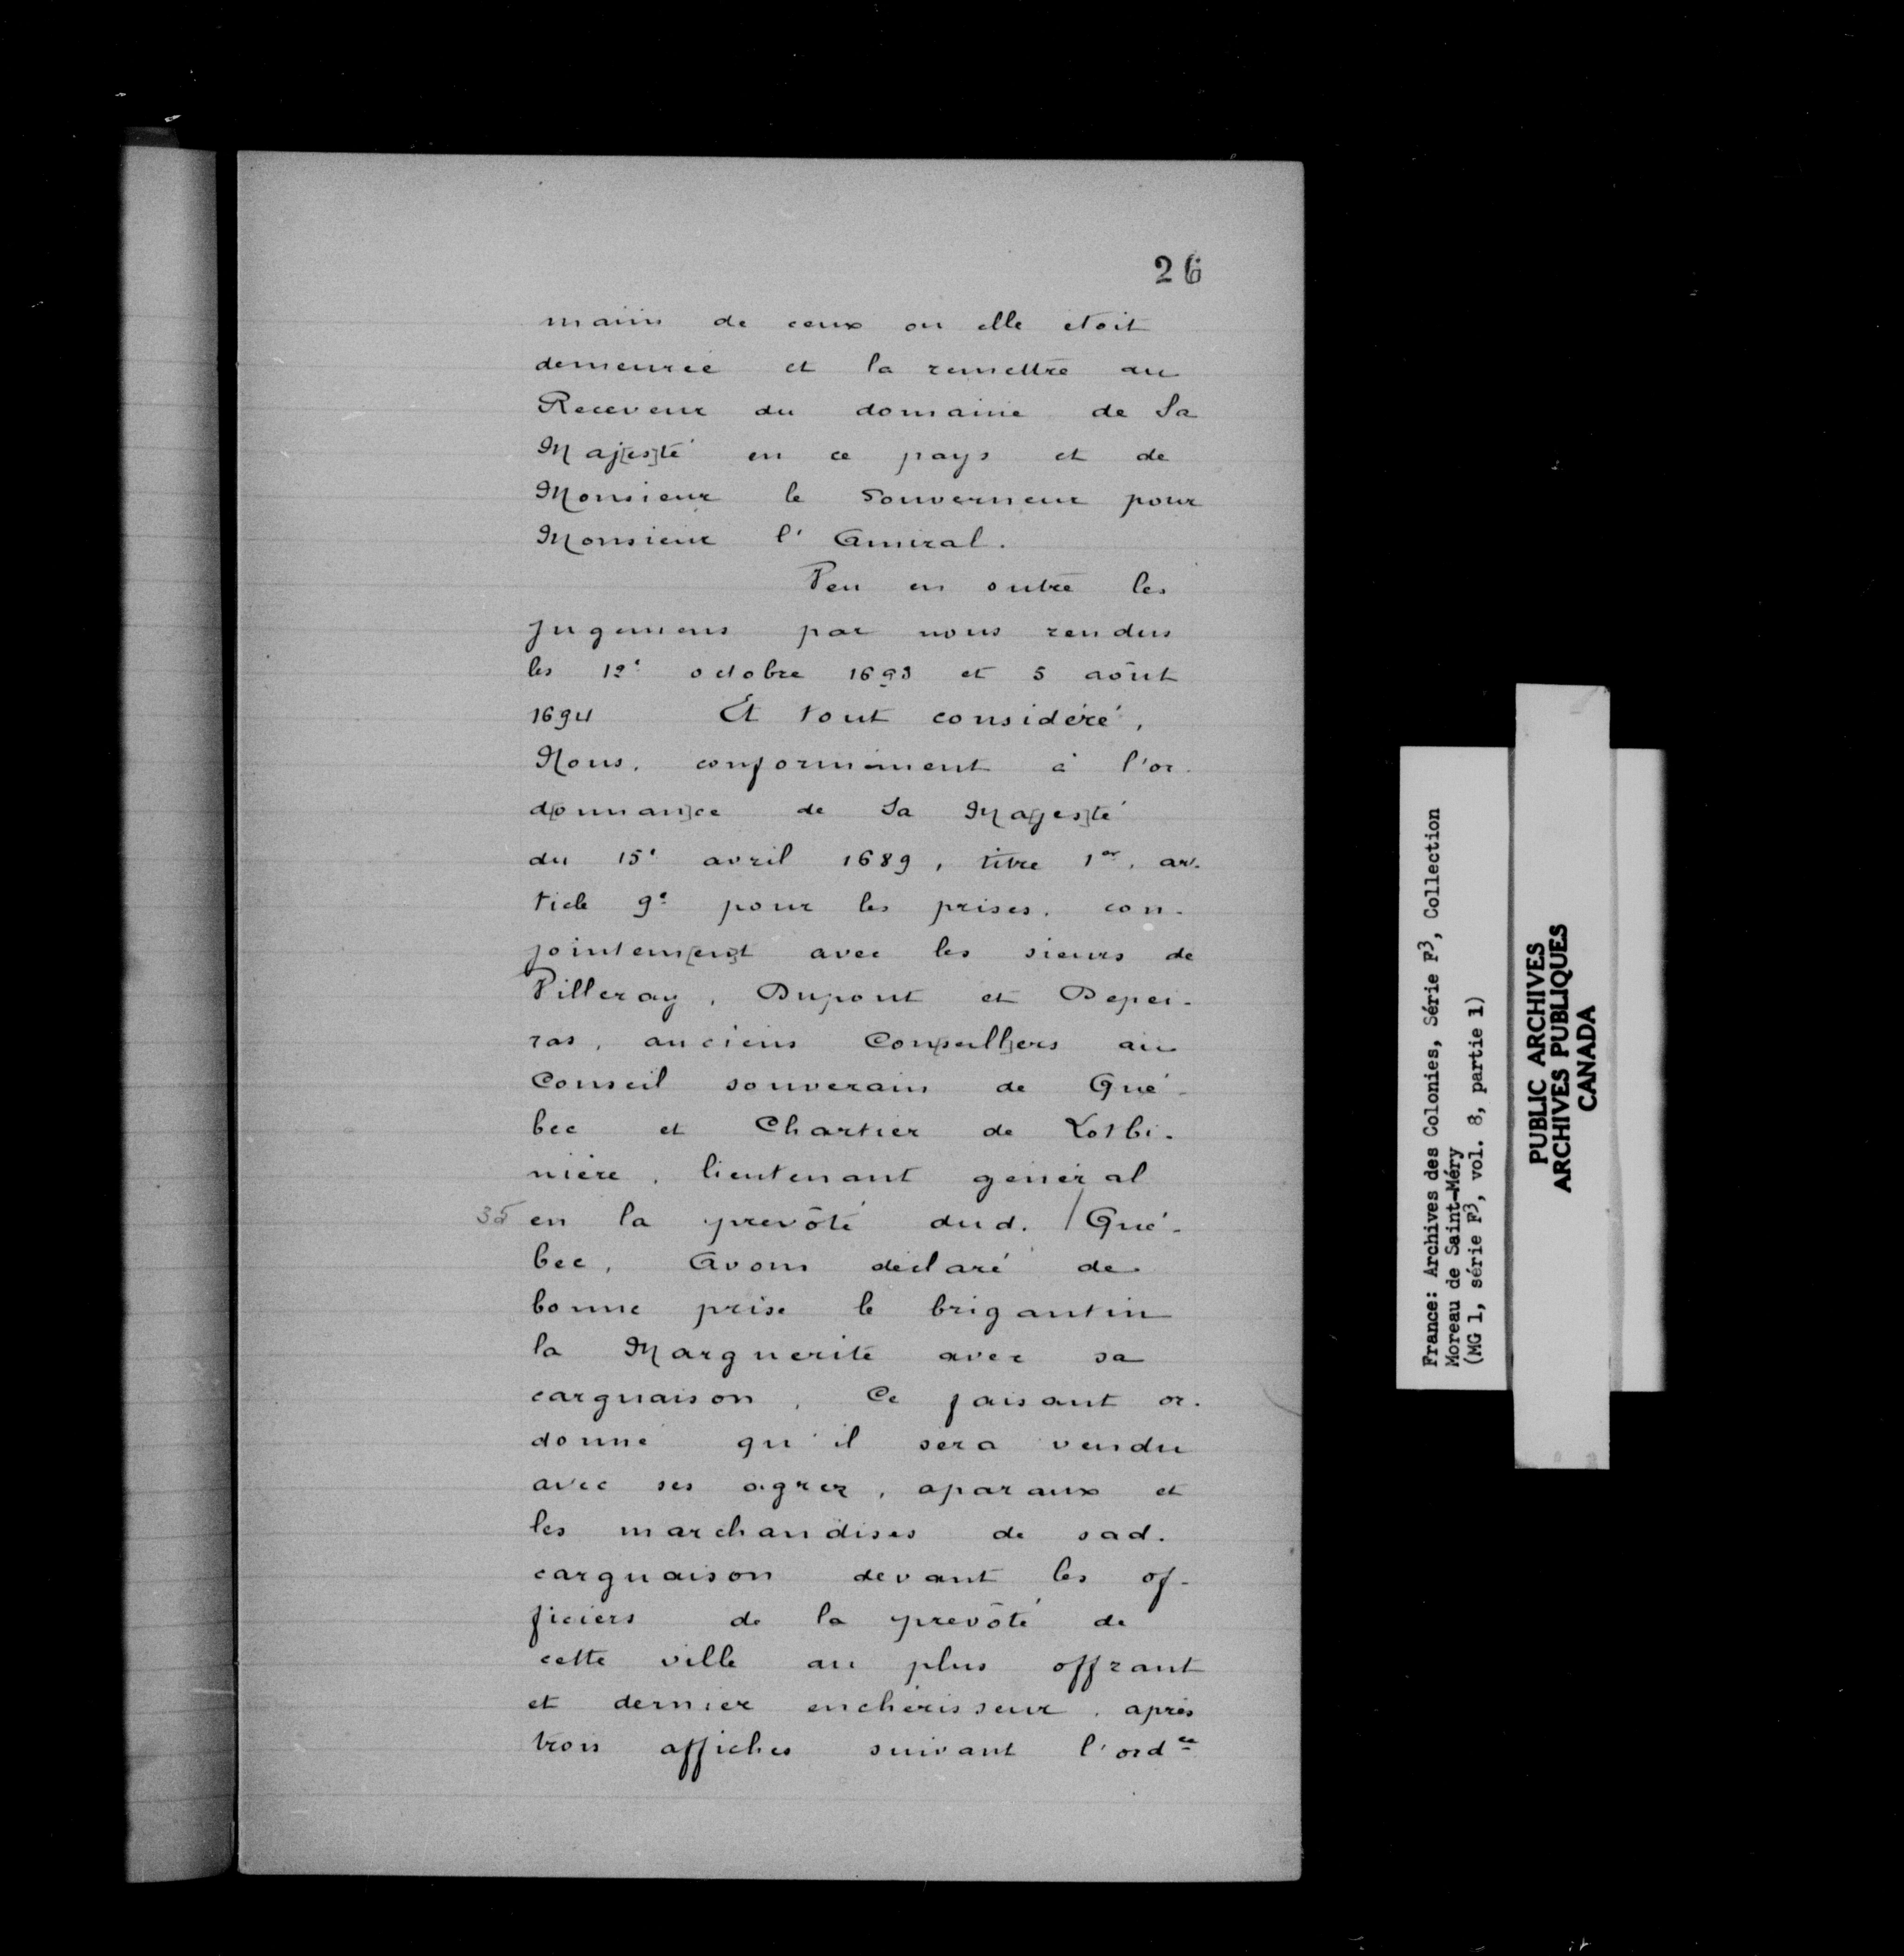 26
mains de ceux ou elle etoit
demeurée et la remettre au
Receveur du domaine de Sa
Maj[es]té en ce pays et de
Monsieur le Gouverneur pour
Monsieur l'Amiral.
Veu en outre les
jugemens par nous rendus
les 12e octobre 1693 et 5 août
1694 Et tout considéré,
Nous, conformément à l'or-
d[onnan]ce de Sa Ma[jes]té
du 15e avril 1689, titre 1er, ar-
ticle 9e pour les prises, con-
jointem[en]t avec les sieurs de
Villeray, Dupont et Depei-
ras, anciens Con[seill]ers au
Conseil souverain de Qué-
bec et Chartier de Lotbi-
nière, lieutenant général
35 en la prevôté dud. / Qué-
bec, Avons déclaré de
bonne prise le brigantin
la Marguerite avec sa
carguaison, Ce faisant or-
donné qu'il sera vendu
avec ses agrez, aparaux et
les marchandises de sad.
carguaison devant les of-
ficiers de la prevôté de
cette ville au plus offrant
et dernier enchérisseur, après
trois affiches suivant l'ordce
France: Archives des Colonies, Série F3, Collection
Moreau de Saint-Méry
(MG 1, série F3, vol. 8, partie 1)
PUBLIC ARCHIVES
ARCHIVES PUBLIQUES
CANADA